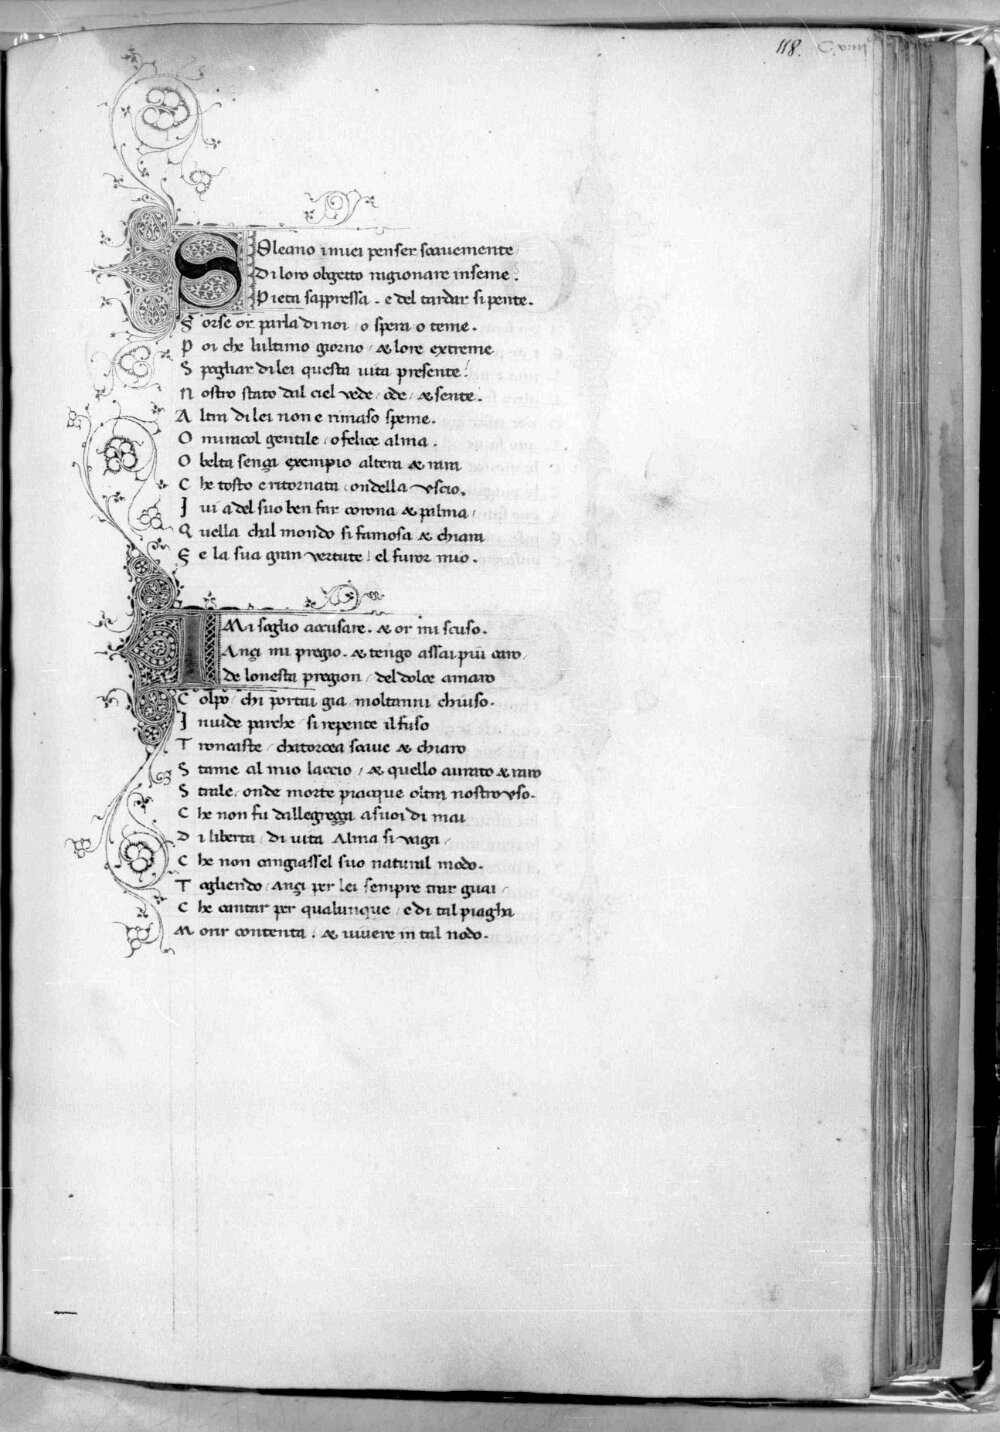 118. C.xviii
SOleano i miei penser soauemente
Di loro obgetto ragionare inseme.
Pieta sappressa. e del tardar si pente.
Forse or parla di noi / o spera / o teme.
Poi che lultimo giorno / & lore extreme
Spogliar di lei questa uita presente!
Nostro stato dal ciel vede / ode / & sente.
Altra di lei non e rimaso speme.
O miracol gentile / o felice alma.
O belta senza exempio altera & rara
Che tosto e ritornata / ondella vscio.
Iui a del suo ben far corona & palma /
Quella chal mondo si famosa & chiara
Fe la sua gran vertute! el furor mio.
IMi soglio accusare. & or mi scuso.
Anzi mi pregio. & tengo assai piu caro /
de lonesta pregion / del dolce amaro
Colpo / chi portai gia / moltanni chiuso.
Inuide parche / si repente il fuso
Troncaste / chatorcea soaue & chiaro
Stame al mio laccio / & quello aurato & raro
Strale / onde morte piacque oltra nostro vso.
Che non fu dallegrezza a suoi di mai
Di liberta / di uita Alma si vaga /
Che non cangiassel suo natural modo.
Togliendo / anzi per lei sempre trar guai /
Che cantar per qualunque / e di tal piagha
Morir contenta. & uiuere in tal nodo.